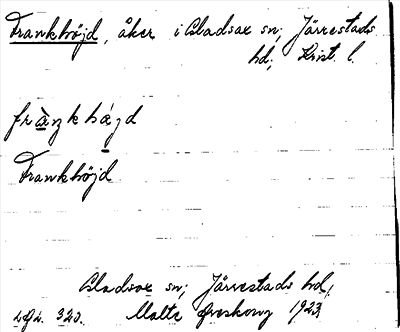 Frankhöjd, åker i Gladsax sn; Järrestads
hd; Krist. l.
fràŋkhǽjd
Frankhöjd
Gladsax sn; Järrestads hd,
Malte 1923.